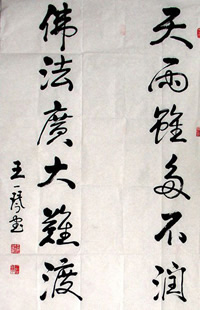 天雨雖多不潤
佛法廣大難渡
王一琴書